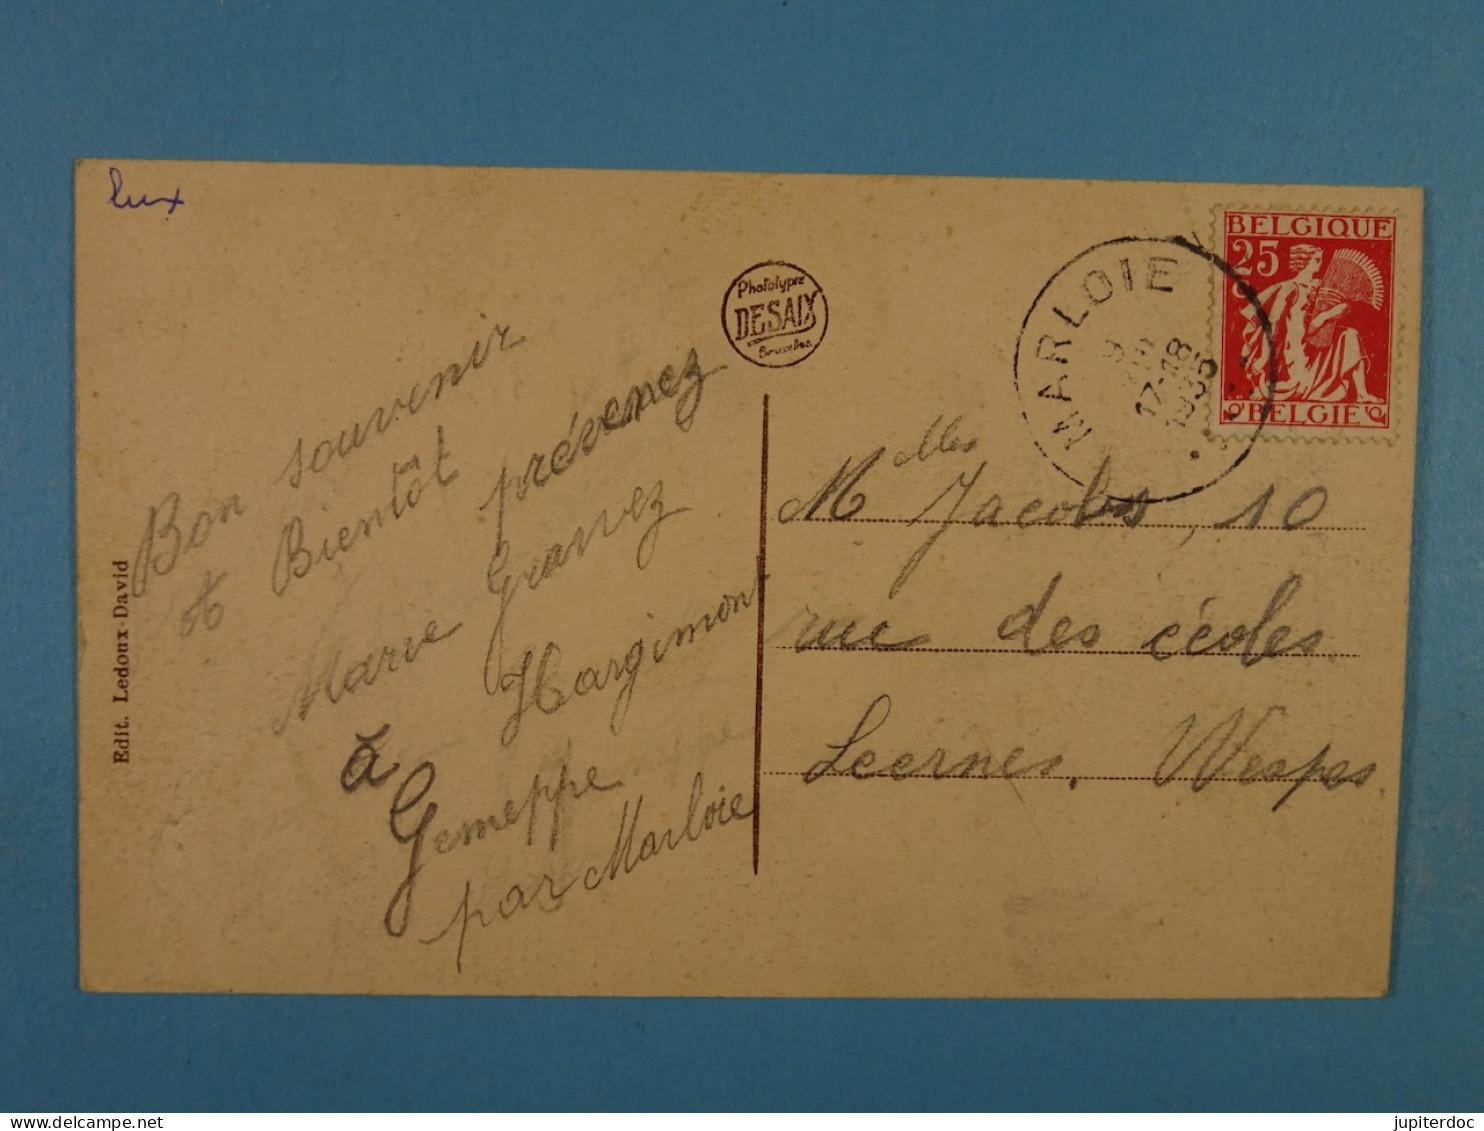 lux
Phototypie
DESAIX
Bruxelles
MARLOIE
9
17-18
1935
BELGIQUE
25
BELGIE
Bon souvenir
et Bientôt
Marie prévenez
Granvez
à Hargimont
Gemeppe
par Marloie
Edit. Ledoux-David
Melles Jacobs, 10
rue des écoles.
Leernes. Wespes.
jupiterdoc